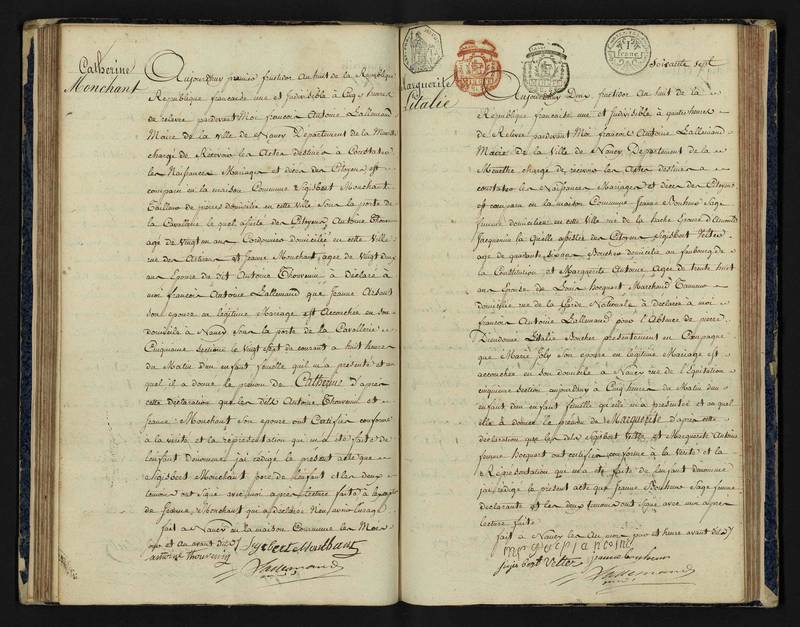 Catherine
Monchant
Aujourdhuy premier fructidor an huit de la République
République francaise une et Indivisible à Cinq heures
de relevée pardevant Moi francois Antoine Lallemand
Maire de la ville de Nancy Departement de la Meurthe
chargé de Recevoir les Actes destinés à Constater
les Naissances Mariages et décès des Citoyens est
comparu en la maison Commune Sigisbert Monchant
Tailleur de pierres domicilié en cette Ville Sous la porte de
la Cavallerie le quel assisté des Citoyens Antoine Thouvenin
agé de Vingt un ans Cordonnier domicilié en cette Ville
rue des Artisans et Jeanne Monchant, agée de Vingt deux
ans Epouse du dit Antoine Thouvenin à Déclaré à
moi francois Antoine Lallemand que Jeanne
son epouse en légitime Mariage est Accouchée en son
domicile à Nancy Sous la porte de la Cavallerie
Cinquieme section le Vingt sept du courant à huit heures
du Matin d'un enfant femelle qu'il m'a presenté et au
quel il a donné le prenom de Catherine d'après
cette déclaration que les dits Antoine Thouvenin et
Jeanne Monchant son epouse ont Certifié conforme
à la vérité et la représentation qui m'a été faite de
l'enfant dénommé, j'ai rédigé le present acte que
Sigisbert Monchant pere de l'enfant et les deux
temoins ont signé avec moi après lecture faite à
de Jeanne Monchant qui a déclaré
fait à Nancy en la maison Commune les Mois
jour et An avant dits
Sigisbert Monchant
antoine thouvenin
Lallemand
Soixante sept
Marguerite
Litalie
Aujourdhuy Deux fructidor an huit de la
République francaise une et Indivisible à quatre heures
de Relevée pardevant Moi francois Antoine Lallemand
Maire de la Ville de Nancy Departement de la
Meurthe chargé de recevoir les Actes destinés à
constater les Naissances Mariages et décès des Citoyens
est comparu en la maison Commune Jeanne Bonheur Sage
femme domiciliée en cette Ville rue de la hache
Jacquemin la Quelle assistée des Citoyens Sigisbert Veltier
agé de quarante ans Boucher domicilié au faubourg de
la Constitution et Marguerite Antoine Agée de trente huit
ans Epouse de Louis hocquart Marchand Tanneur
domiciliée rue de la Garde Nationale à déclaré à moi
francois Antoine Lallemand pour l'Absence de pierre
Dieudonné Litalie Boucher presentement en Campagne
que Marie Joly son epouse en légitime Mariage est
accouchée en son domicile à Nancy rue de l'Equitation
cinquieme section aujourdhuy à Cinq heures du Matin d'un
enfant d'un enfant femelle qu'elle m'a presenté et au quel
elle à donné le prenom de Marguerite d'après cette
déclaration que les dits Sigisbert Veltier et Marguerite Antoine
femme hocquart ont certifié conforme à la Vérité et la
Représentation qui m'a été faite de l'enfant dénommé
j'ai rédigé le present acte que Jeanne Bonheur Sage femme
déclarante et les deux temoins ont signé avec moi après
lecture faite
fait à Nancy les An, mois, jour et heure avant dits
Jeanne bonheur
Sigisbert Veltier
Lallemand